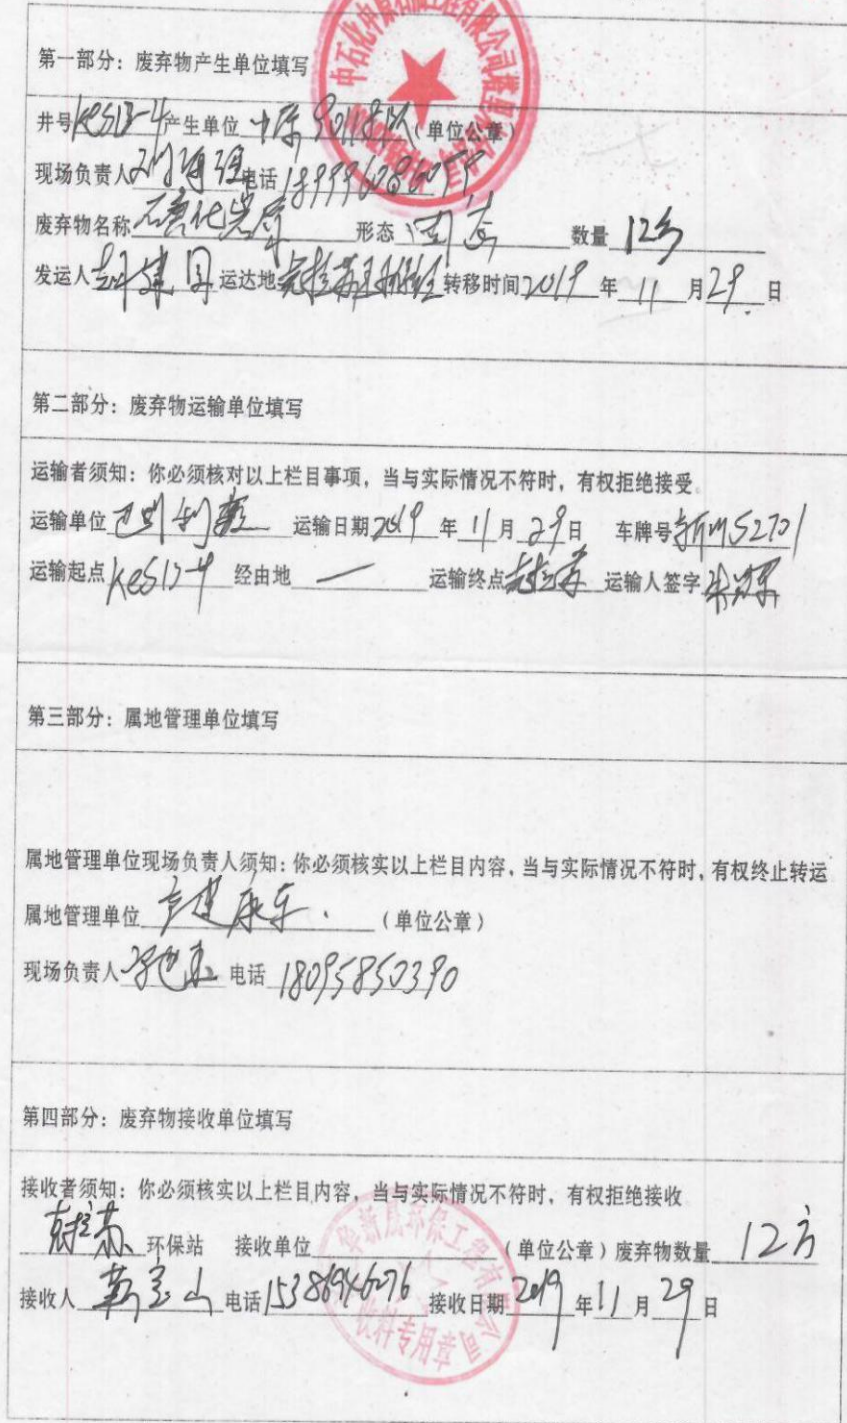 第一部分：废弃物产生单位填写
井号KeS13-4产生单位中原90118队（单位公章）
现场负责人 电话
废弃物名称磺化岩屑 形态固态 数量12方
发运人 运达地克拉苏 转移时间2019年11月29日
第二部分：废弃物运输单位填写
运输者须知：你必须核对以上栏目事项，当与实际情况不符时，有权拒绝接受。
运输单位巴州 运输日期2019年11月29日 车牌号新M52701
运输起点KeS13-4 经由地 — 运输终点克拉苏 运输人签字
第三部分：属地管理单位填写
属地管理单位现场负责人须知：你必须核实以上栏目内容，当与实际情况不符时，有权终止转运
属地管理单位 （单位公章）
现场负责人 电话18095850390
第四部分：废弃物接收单位填写
接收者须知：你必须核实以上栏目内容，当与实际情况不符时，有权拒绝接收
克拉苏环保站 接收单位 （单位公章）废弃物数量12方
接收人靳宝山电话15386946076接收日期2019年11月29日
收料专用章